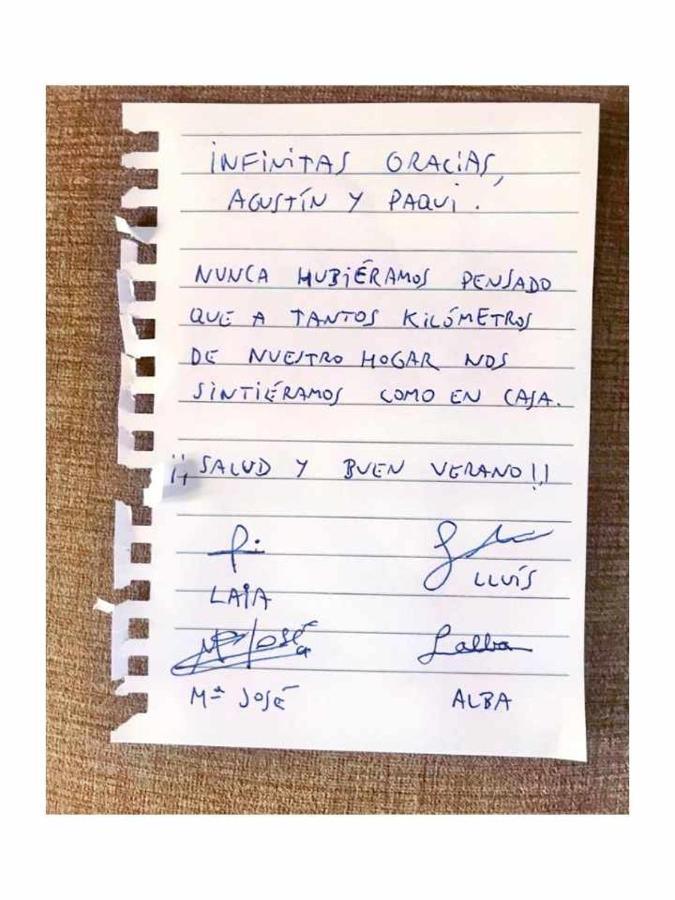 INFINITAS GRACIAS,
AGUSTÍN Y PAQUI.
NUNCA HUBIÉRAMOS PENSADO
QUE A TANTOS KILÓMETROS
DE NUESTRO HOGAR NOS
SINTIÉRAMOS COMO EN CASA.
¡¡SALUD Y BUEN VERANO!!
LLUÍS
LAIA
Mª José
Lalba
Mª JOSÉ ALBA